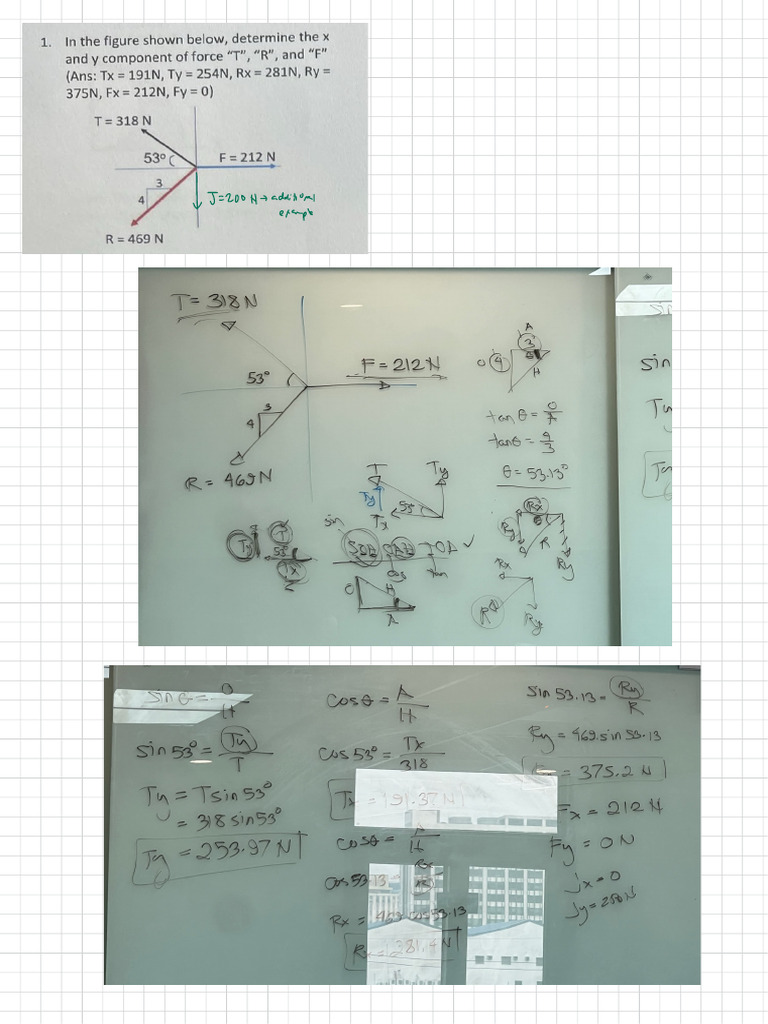 1. In the figure shown below, determine the x
and y component of force "T", "R", and "F"
(Ans: Tx = 191N, Ty = 254N, Rx = 281N, Ry =
375N, Fx = 212N, Fy = 0)
T = 318 N
53°
F = 212 N
3
4
J=200 N → additional
example
R = 469 N
T = 318 N
53°
F = 212 N
3
4
R = 469 N
A
3
O 4
θ
H
tan θ = O/A
tan θ = 4/3
θ = 53.13°
T
Ty
Ty
53°
Tx
Ty
T
53°
Tx
sin
SOH CAH TOA ✓
cos
tan
O
H
A
Rx
Ry
θ
R
Ry
Rx
R
Ry
sin
Ty
sin θ = O/H
sin 53° = Ty/T
Ty = T sin 53°
= 318 sin 53°
Ty = 253.97 N
cos θ = A/H
cos 53° = Tx/318
Tx = 191.37 N
cos θ = A/H
cos 53.13 = Rx
Rx = 469 cos 53.13
sin 53.13 = Ry/R
Ry = 469 sin 53.13
= 375.2 N
Fx = 212 N
Fy = 0 N
Jx = 0